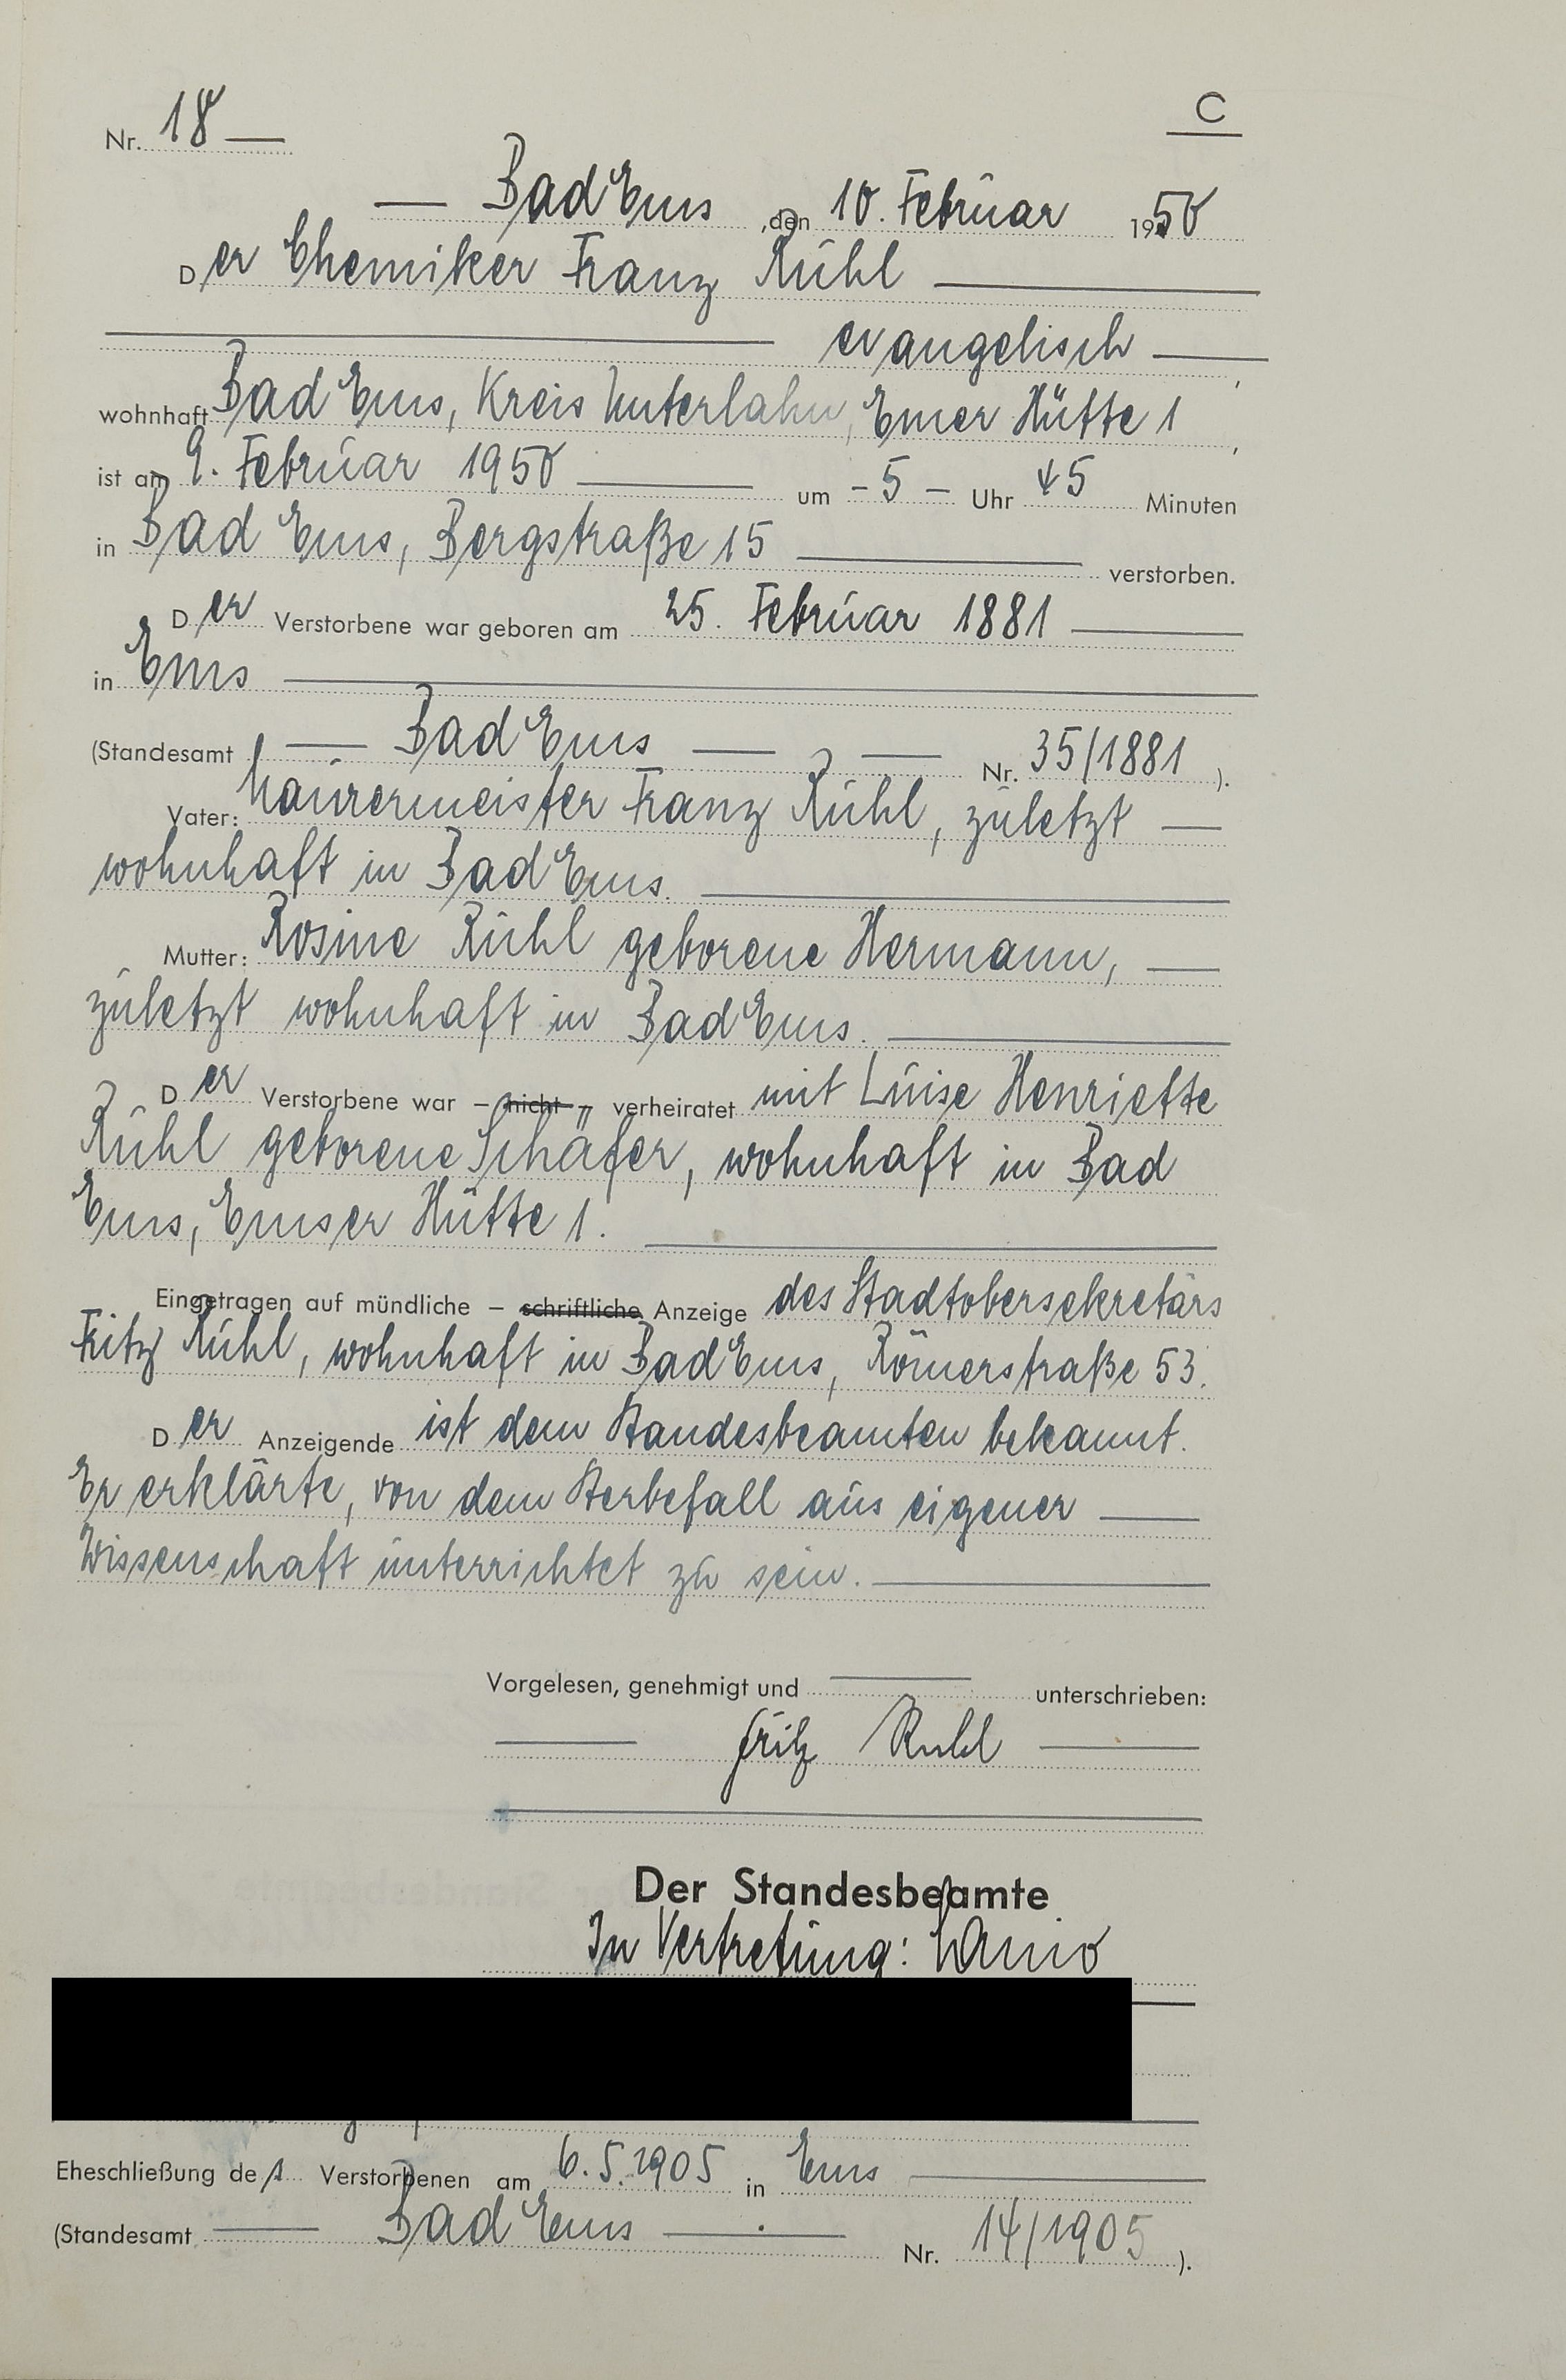 Nr. 18 — C
— Bad Ems, den 10. Februar 1950
Der Chemiker Franz Rühl —
— evangelisch —,
wohnhaft Bad Ems, Kreis Unterlahn, Emser Hütte 1,
ist am 9. Februar 1950 — um - 5 - Uhr 45 Minuten
in Bad Ems, Bergstraße 15 — verstorben.
Der Verstorbene war geboren am 25. Februar 1881 —
in Ems —
(Standesamt — Bad Ems — — Nr. 35/1881 ).
Vater: Maurermeister Franz Rühl, zuletzt —
wohnhaft in Bad Ems. —
Mutter: Rosine Rühl geborene Hermann, —
zuletzt wohnhaft in Bad Ems. —
Der Verstorbene war – nicht – verheiratet mit Luise Henriette
Rühl geborene Schäfer, wohnhaft in Bad
Ems, Emser Hütte 1. —
Eingetragen auf mündliche – schriftliche Anzeige des Stadtobersekretärs
Fritz Rühl, wohnhaft in Bad Ems, Römerstraße 53.
Der Anzeigende ist dem Standesbeamten bekannt.
Er erklärte, von dem Sterbefall aus eigener —
Wissenschaft unterrichtet zu sein. —
Vorgelesen, genehmigt und — unterschrieben:
— Fritz Rühl —
Der Standesbeamte
In Vertretung:
Eheschließung des Verstorbenen am 6.5.1905 in Ems —
(Standesamt — Bad Ems — Nr. 14/1905 ).